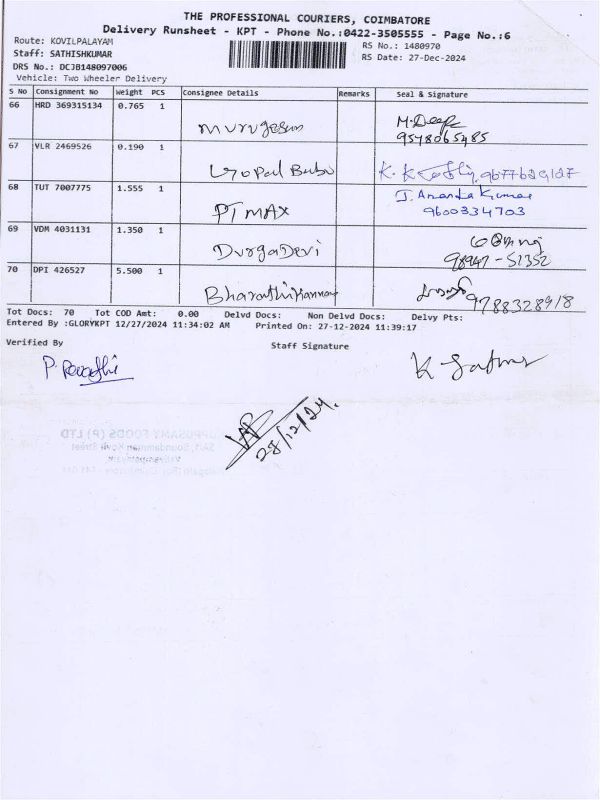 THE PROFESSIONAL COURIERS, COIMBATORE
Delivery Runsheet - KPT - Phone No.:0422-3505555 - Page No.:6
Route: KOVILPALAYAM
RS No.: 1480970
Staff: SATHISHKUMAR
RS Date: 27-Dec-2024
DRS No.: DCJB148097006
Vehicle: Two Wheeler Delivery
S No Consignment No Weight PCS Consignee Details Remarks Seal & Signature
66 HRD 369315134 0.765 1 Murugesan M. Deepa
9578065485
67 VLR 2469526 0.190 1 Gopal Babu 9677629107
68 TUT 7007775 1.555 1 PT MAX J. Ananda Kumar
9600334703
69 VDM 4031131 1.350 1 DurgaDevi
98947-51352
70 DPI 426527 5.500 1 Bharathikannan 9788328918
Tot Docs: 70 Tot COD Amt: 0.00 Delvd Docs: Non Delvd Docs: Delvy Pts:
Entered By :GLORYKPT 12/27/2024 11:34:02 AM Printed On: 27-12-2024 11:39:17
Verified By
Staff Signature
28/12/24.